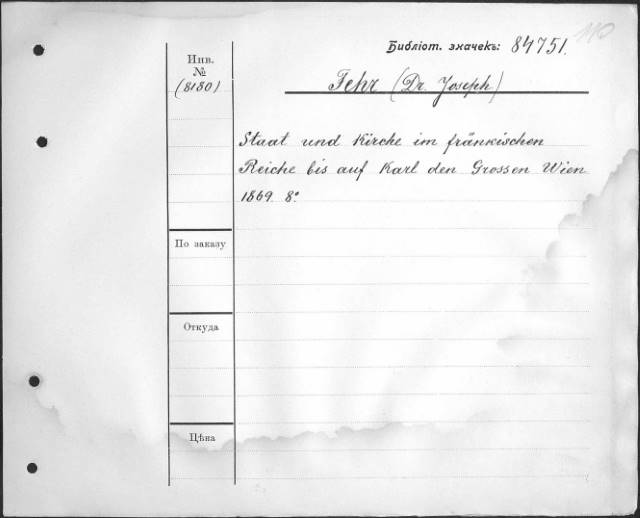 Библіот. значекъ: 84751.
110
Инв.
№
(8180)
Fehr (Dr. Joseph)
Staat und Kirche im fränkischen
Reiche bis auf Karl den Grossen Wien
1869. 8°
По заказу
Откуда
Цѣна